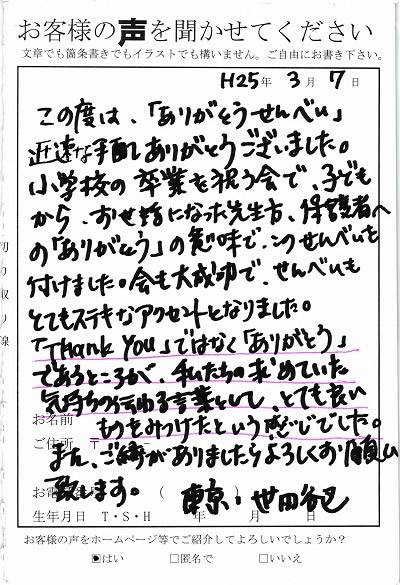 お客様の声を聞かせてください
文章でも箇条書きでもイラストでも構いません。ご自由にお書き下さい。
H25年 3月 7日
この度は、「ありがとうせんべい」
迅速な手配ありがとうございました。
小学校の卒業を祝う会で、子ども
から、お世話になった先生方、保護者へ
の「ありがとう」の意味で、このせんべいも
付けました。会も大成功で、せんべいも
とてもステキなアクセントとなりました。
「Thank You」ではなく「ありがとう」
であるところが、私たちの求めていた
気持ちの伝わる言葉として、とても良い
お名前
ものをみつけたという感じでした。
ご住所 〒
また、ご縁がありましたらよろしくお願い
致します。
お電話 ( )
東京・世田谷区
生年月日 T・S・H 年 月 日
お客様の声をホームページ等でご紹介してよろしいでしょうか?
はい 匿名で いいえ
切り取り線